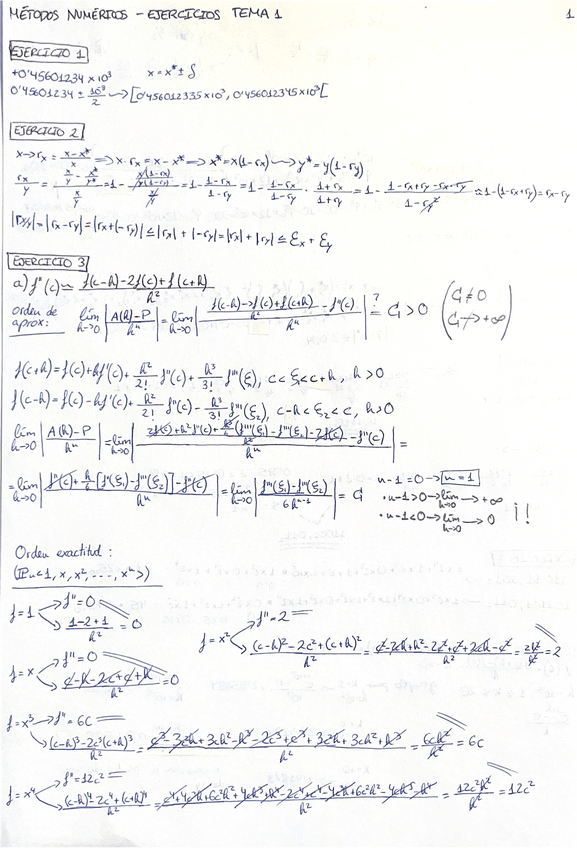 MÉTODOS NUMÉRICOS - EJERCICIOS TEMA 1
1
EJERCICIO 1
+0'45601234 x 10³   x = x* ± δ
0'45601234 ± 10⁻⁸/2 ⟿ [0'456012335 x 10³, 0'456012345 x 10³[
EJERCICIO 2
x → rx = (x - x*)/x ⟹ x · rx = x - x* ⟹ x* = x(1 - rx) ⟿ y* = y(1 - ry)
rx/y = (x/y - x*/y*)/(x/y) = 1 - (x(1-rx)/y(1-ry))/(x/y) = 1 - (1-rx)/(1-ry) = 1 - (1-rx)/(1-ry) · (1+rx)/(1+ry) = 1 - (1-rx+ry-rx·ry)/(1-ry²) ≈ 1 - (1-rx+ry) = rx - ry
|rx/y| = |rx - ry| = |rx + (-ry)| ≤ |rx| + |-ry| = |rx| + |ry| ≤ Ex + Ey
EJERCICIO 3
a) f''(c) ≈ (f(c-h) - 2f(c) + f(c+h))/h²
orden de aprox: lím h→0 |(A(h) - P)/hⁿ| = lím h→0 |((f(c-h) - 2f(c) + f(c+h))/h² - f''(c))/hⁿ| =? C > 0 (C ≠ 0 C ↛ +∞)
f(c+h) = f(c) + hf'(c) + h²/2! f''(c) + h³/3! f'''(ξ₁), c < ξ₁ < c+h, h > 0
f(c-h) = f(c) - hf'(c) + h²/2! f''(c) - h³/3! f'''(ξ₂), c-h < ξ₂ < c, h > 0
lím h→0 |(A(h) - P)/hⁿ| = lím h→0 |((2f(c) + h²f''(c) + h³/6 (f'''(ξ₁) - f'''(ξ₂)) - 2f(c))/h² - f''(c))/hⁿ| =
= lím h→0 |(f''(c) + h/6 [f'''(ξ₁) - f'''(ξ₂)] - f''(c))/hⁿ| = lím h→0 |(f'''(ξ₁) - f'''(ξ₂))/6hⁿ⁻¹| = C   n-1 = 0 → n = 1
· n-1 > 0 → lím h→0 → +∞
· n-1 < 0 → lím h→0 → 0   ¡!
Orden exactitud:
(ℙn <1, x, x², ..., xⁿ>)
f = 1   f'' = 0
(1 - 2 + 1)/h² = 0
f = x²   f'' = 2
((c-h)² - 2c² + (c+h)²)/h² = (c² - 2ch + h² - 2c² + c² + 2ch - c²)/h² = 2h²/h² = 2
f = x   f'' = 0
(c - h - 2c + c + h)/h² = 0
f = x³   f'' = 6c
((c-h)³ - 2c³(c+h)³)/h² = (c³ - 3c²h + 3ch² - h³ - 2c³ + c³ + 3c²h + 3ch² + h³)/h² = 6ch²/h² = 6c
f = x⁴   f'' = 12c²
((c-h)⁴ - 2c⁴ + (c+h)⁴)/h² = (c⁴ + 4c³h + 6c²h² + 4ch³ + h⁴ - 2c⁴ + c⁴ - 4c³h + 6c²h² - 4ch³ - h⁴)/h² = 12c²h²/h² = 12c²